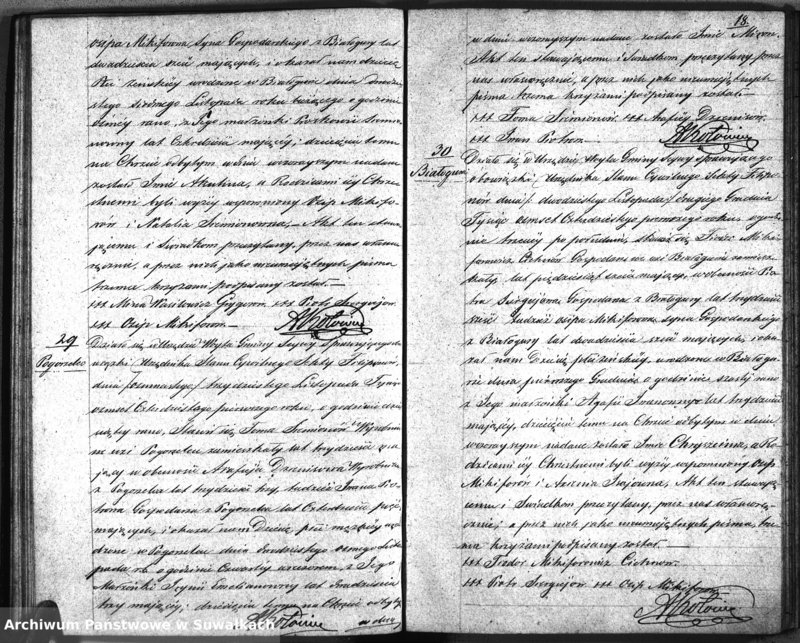 Osipa Mikiforowa Syna Gospodarskiego z Białogury lat
dwadzieścia sześć mających, i okazał nam dziecię
Płci żeńskiéj urodzone w Białogurze dnia dwudzie
stego siódmego Listopada roku bieżącego o godzinie
rano, z Jego małżonki
lat Czterdzieści mającéj, dziecięciu temu
na Chrzcie odbytym w dniu wczorayszym nadane
zostało Imie Akulina, a Rodzicami iéy Chrze
stnemi byli wyżéj wspomniony Osip Mikifo
rów i Natalia Siemionowna, Akt ten stawa
jącemu i Świadkom przeczytany, przez nas własno
ręcznie, a przez nich jako nieumiejętnych pisma
trzema krzyżami podpisany został.
+++ Grygorow. +++ Piotr Siergiejow.
+++ Osip Mikiforow
29
Pogorzelec
Działo się w Urzędzie Wójta Gminy Sejwy Sprawującego
obowiązki Urzędnika Stanu Cywilnego Sekty Filiponów
dnia trzydziestego Listopada Tysiąc
osmset Czterdziestego pierwszego roku, o godzinie
rano, Stawił się Foma Siemionów
we wsi Pogorzelcu zamieszkały lat trzydzieści
w obecności Arafieja Dzienisowa Wyrobnika
z Pogorzelca lat trzydzieści trzy, tudzież Iwana Pio
trowa Gospodarza z Pogorzelca lat Czterdzieści pięć
mających, i okazał nam Dziecię płci męzkiéy uro
dzone w Pogorzelcu dnia dwudziestego osmego Listo
pada r. b. o godzinie Czwartéy wieczorem, z Jego
Małżonki lat dwadzieścia
trzy mającéj; dziecięciu temu na Chrzcie odbytym
w dniu
18.
w dniu wczorayszym nadane zostało Imie
Akt ten stawającemu i Świadkom przeczytany, przez
nas własnoręcznie, a przez nich jako nieumiejętnych
pisma trzema krzyżami podpisany został.
+++ Foma Siemionów. +++ Arafiéy Dzienisow.
+++ Iwan Piotrow.
30
Białogura
Działo się w Urzędzie Wójta Gminy Sejwy Sprawującego
obowiązki Urzędnika Stanu Cywilnego Sekty Filipo
nów dnia dwudziestego Listopada / drugiego Grudnia
Tysiąc osmset Czterdziestego pierwszego roku, o godzi
nie trzeciéy po południu, stawił się Fiodor Miki
forowicz Gospodarz we wsi Białogurze zamiesz
kały, lat pięćdziesiąt sześć mający, w obecności Pio
tra Siergiejowa Gospodarza z Białogury lat trzydzieści
sześć tudzież Osipa Mikiforowa syna Gospodarskiego
z Białogury lat dwadzieścia sześć mających i oka
zał nam Dziecię płci żeńskiéy, urodzone w Białogu
rze dnia pierwszego Grudnia o godzinie szóstéj rano
z Jego małżonki Agafii lat trzydzieści
mającéy, dziecięciu temu na Chrzcie odbytym w dniu
wczorayszym nadane zostało Imie a Ro
dzicami iéy Chrzestnemi byli wyżéy wspomniony Osip
Mikiforow i Akt ten stawają
cemu i Świadkom przeczytany, przez nas własnorę
cznie, a przez nich jako nieumiejętnych pisma, trze
ma krzyżami podpisany został.
+++ Fiodor Mikiforowicz
+++ Piotr Siergiejow. +++ Osip Mikiforow
Archiwum Państwowe w Suwałkach